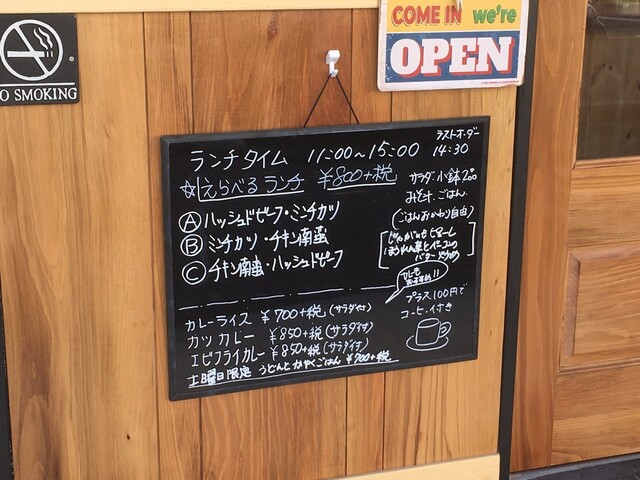 NO SMOKING
COME IN we're
OPEN
ランチタイム 11:00〜15:00
ラストオーダー
14:30
☆えらべるランチ ¥800+税
Ⓐハッシュドビーフ・ミンチカツ
Ⓑミンチカツ・チキン南蛮
Ⓒチキン南蛮・ハッシュドビーフ
サラダ 小鉢2コ
みそ汁・ごはん
(ごはんおかわり自由)
ほうれん草とベーコンの
バター
カレーも
おすすめ!!
カレーライス ¥700+税(サラダ付)
カツカレー ¥850+税(サラダ付)
エビフライカレー ¥850+税(サラダ付)
土曜日限定 うどんとかやくごはん ¥700+税
プラス100円で
コーヒー付き